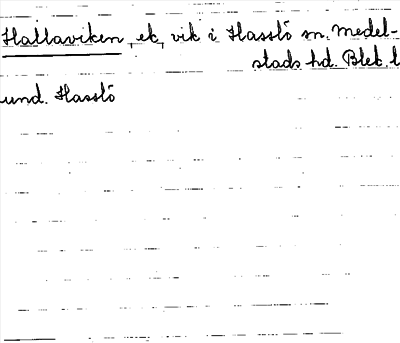 Hallaviken, ek, vik i Hasslö sn. Medel-
stads hd. Blek. l
und. Hasslö